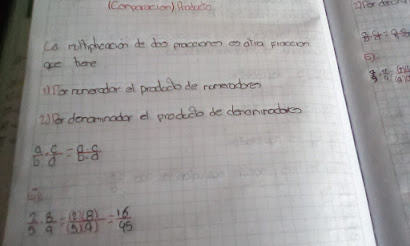 (Comparacion) Producto
La multiplicacion de dos fracciones es otra fraccion
que tiene
1) Por numerador el producto de numeradores
2) Por denominador el producto de denominadores
a/b · c/d = a·c/b·d
2/5 · 8/9 = (2)(8)/(5)(9) = 16/45